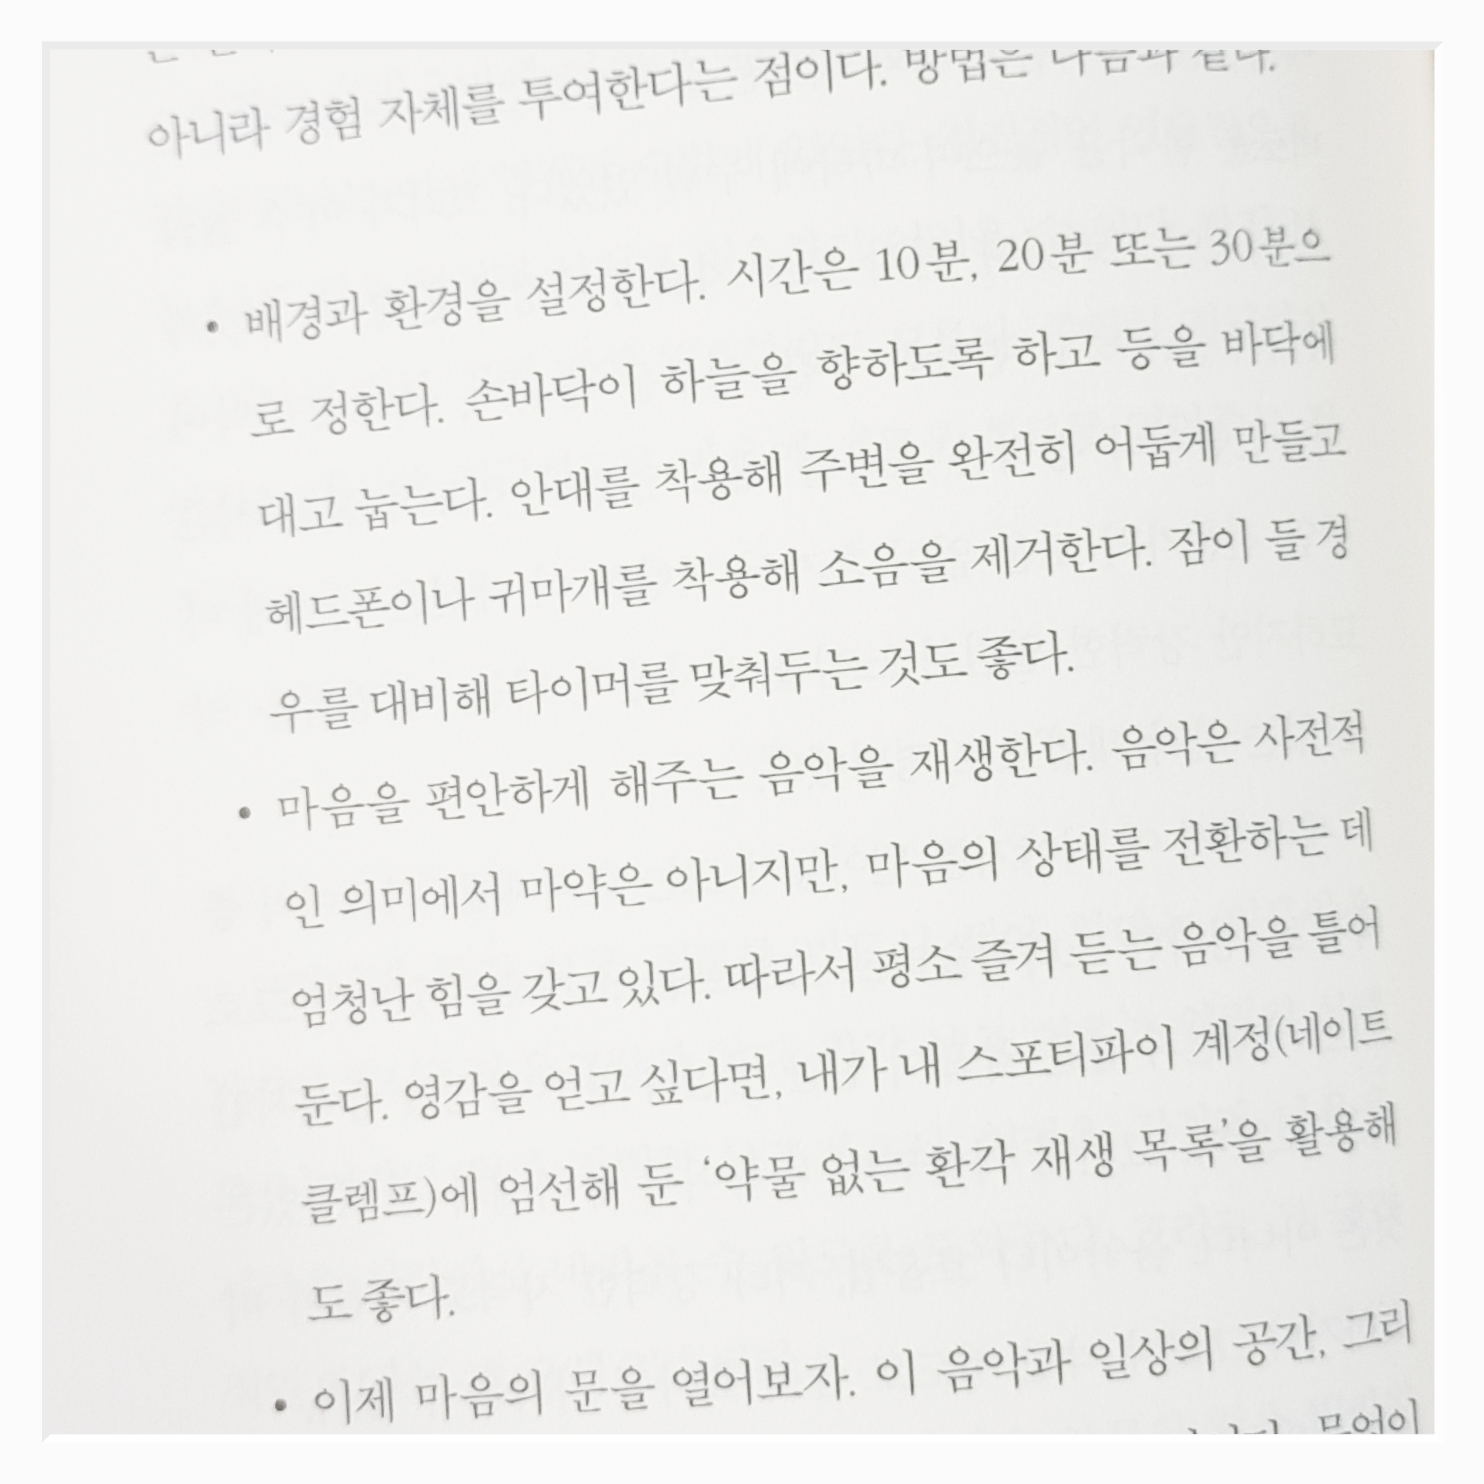 아니라 경험 자체를 투여한다는 점이다. 방법은 다음과 같다.
• 배경과 환경을 설정한다. 시간은 10분, 20분 또는 30분으
로 정한다. 손바닥이 하늘을 향하도록 하고 등을 바닥에
대고 눕는다. 안대를 착용해 주변을 완전히 어둡게 만들고
헤드폰이나 귀마개를 착용해 소음을 제거한다. 잠이 들 경
우를 대비해 타이머를 맞춰두는 것도 좋다.
• 마음을 편안하게 해주는 음악을 재생한다. 음악은 사전적
인 의미에서 마약은 아니지만, 마음의 상태를 전환하는 데
엄청난 힘을 갖고 있다. 따라서 평소 즐겨 듣는 음악을 틀어
둔다. 영감을 얻고 싶다면, 내가 내 스포티파이 계정(네이트
클렘프)에 엄선해 둔 ‘약물 없는 환각 재생 목록’을 활용해
도 좋다.
• 이제 마음의 문을 열어보자. 이 음악과 일상의 공간, 그리
무엇이